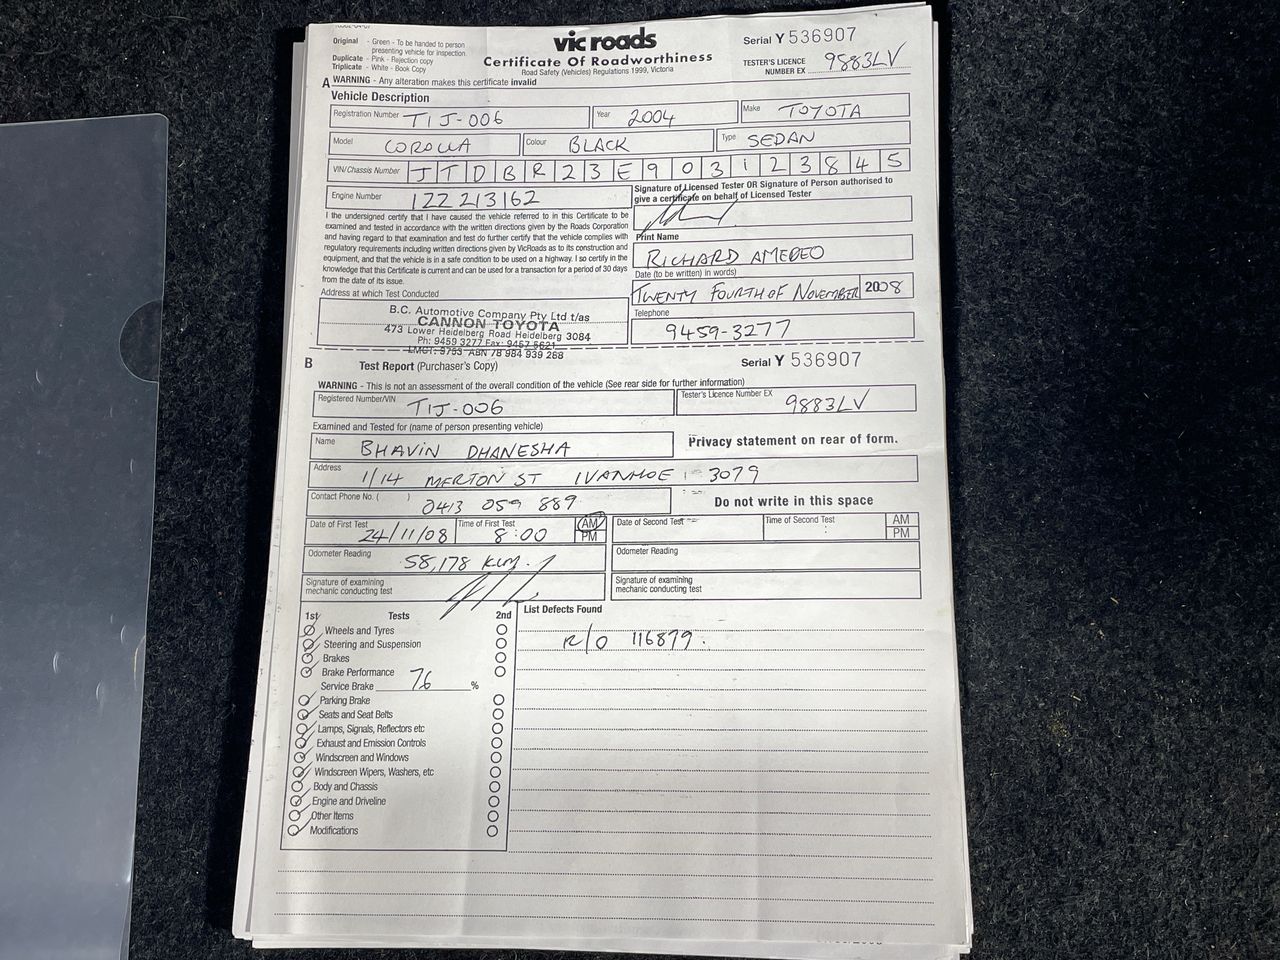 Original - Green - To be handed to person
presenting vehicle for inspection.
Duplicate - Pink - Rejection copy
Triplicate - White - Book Copy
vic roads
Certificate Of Roadworthiness
Road Safety (Vehicles) Regulations 1999, Victoria
Serial Y 536907
TESTER'S LICENCE
NUMBER EX 9883LV
A WARNING - Any alteration makes this certificate invalid
Vehicle Description
Registration Number TIJ-006 Year 2004 Make TOYOTA
Model COROLLA Colour BLACK Type SEDAN
VIN/Chassis Number JTDBR23E903123845
Engine Number 1ZZ 213162
Signature of Licensed Tester OR Signature of Person authorised to
give a certificate on behalf of Licensed Tester
I the undersigned certify that I have caused the vehicle referred to in this Certificate to be
examined and tested in accordance with the written directions given by the Roads Corporation
and having regard to that examination and test do further certify that the vehicle complies with
regulatory requirements including written directions given by VicRoads as to its construction and
equipment, and that the vehicle is in a safe condition to be used on a highway. I so certify in the
knowledge that this Certificate is current and can be used for a transaction for a period of 30 days
from the date of its issue.
Print Name
RICHARD AMEDEO
Date (to be written) in words)
TWENTY FOURTH OF NOVEMBER 2008
Address at which Test Conducted
B.C. Automotive Company Pty Ltd t/as
CANNON TOYOTA
473 Lower Heidelberg Road Heidelberg 3084
Ph: 9459 3277 Fax: 9457 5621
LMCT: 9753 ABN 78 984 939 288
Telephone
9459-3277
B Test Report (Purchaser's Copy) Serial Y 536907
WARNING - This is not an assessment of the overall condition of the vehicle (See rear side for further information)
Registered Number/VIN TIJ-006 Tester's Licence Number EX 9883LV
Examined and Tested for (name of person presenting vehicle)
Name BHAVIN DHANESHA
Privacy statement on rear of form.
Address 1/14 MERTON ST IVANHOE 3079
Contact Phone No. ( ) 0413 059 889
Do not write in this space
Date of First Test 24/11/08 Time of First Test 8:00 AM PM
Date of Second Test Time of Second Test : AM PM
Odometer Reading 58,178 KLM.
Odometer Reading
Signature of examining
mechanic conducting test
Signature of examining
mechanic conducting test
1st Tests 2nd
List Defects Found
R/O 116879.
Wheels and Tyres
Steering and Suspension
Brakes
Brake Performance
Service Brake 76 %
Parking Brake
Seats and Seat Belts
Lamps, Signals, Reflectors etc
Exhaust and Emission Controls
Windscreen and Windows
Windscreen Wipers, Washers, etc
Body and Chassis
Engine and Driveline
Other Items
Modifications